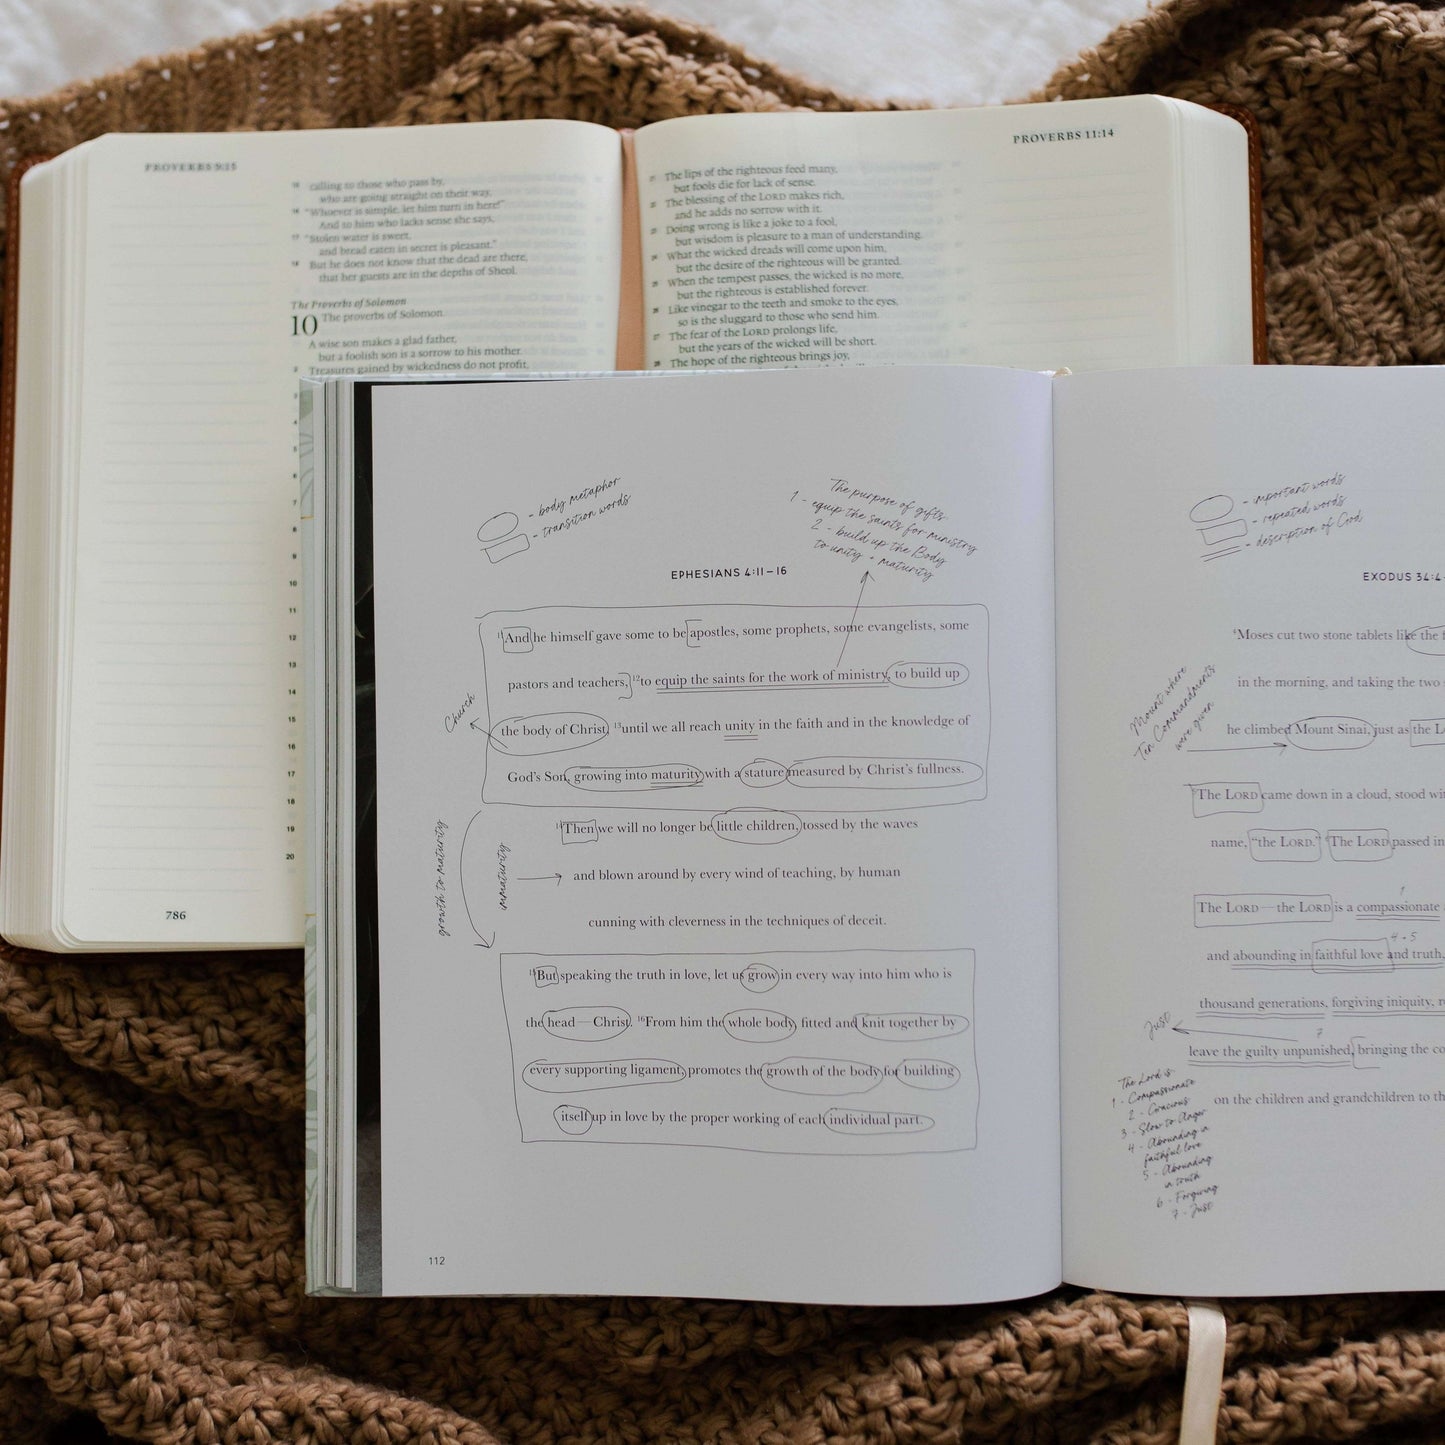 PROVERBS 9:15
calling to those who pass by,
who are going straight on their way,
16 "Whoever is simple, let him turn in here!"
And to him who lacks sense she says,
17 "Stolen water is sweet,
and bread eaten in secret is pleasant."
18 But he does not know that the dead are there,
that her guests are in the depths of Sheol.
The Proverbs of Solomon
10 The proverbs of Solomon.
A wise son makes a glad father,
but a foolish son is a sorrow to his mother.
2 Treasures gained by wickedness do not profit,
3
4
5
6
7
8
9
10
11
12
13
14
15
16
17
18
19
20
786
PROVERBS 11:14
21 The lips of the righteous feed many,
but fools die for lack of sense.
22 The blessing of the LORD makes rich,
and he adds no sorrow with it.
23 Doing wrong is like a joke to a fool,
but wisdom is pleasure to a man of understanding.
24 What the wicked dreads will come upon him,
but the desire of the righteous will be granted.
25 When the tempest passes, the wicked is no more,
but the righteous is established forever.
26 Like vinegar to the teeth and smoke to the eyes,
so is the sluggard to those who send him.
27 The fear of the LORD prolongs life,
but the years of the wicked will be short.
28 The hope of the righteous brings joy,
- body metaphor
- transition words
The purpose of gifts
1 - equip the saints for ministry
2 - build up the Body
to unity + maturity
EPHESIANS 4:11–16
11 And he himself gave some to be apostles, some prophets, some evangelists, some
pastors and teachers, 12 to equip the saints for the work of ministry, to build up
Church
the body of Christ, 13 until we all reach unity in the faith and in the knowledge of
God's Son, growing into maturity with a stature measured by Christ's fullness.
14 Then we will no longer be little children, tossed by the waves
growth to maturity
immaturity
and blown around by every wind of teaching, by human
cunning with cleverness in the techniques of deceit.
15 But speaking the truth in love, let us grow in every way into him who is
the head—Christ. 16 From him the whole body, fitted and knit together by
every supporting ligament, promotes the growth of the body for building
itself up in love by the proper working of each individual part.
112
- important words
- repeated words
- description of God
EXODUS 34:4-
4 Moses cut two stone tablets like the f
in the morning, and taking the two
Mount where
Ten Commandments
were given
he climbed Mount Sinai, just as the L
5 The LORD came down in a cloud, stood wi
name, "the LORD." 6 The LORD passed in
1
The LORD—the LORD is a compassionate
4 + 5
and abounding in faithful love and truth,
thousand generations, forgiving iniquity, r
Just
7
leave the guilty unpunished, bringing the co
on the children and grandchildren to th
The Lord is
1 - Compassionate
2 - Gracious
3 - Slow to Anger
4 - Abounding in
faithful love
5 - Abounding
in truth
6 - Forgiving
7 - Just